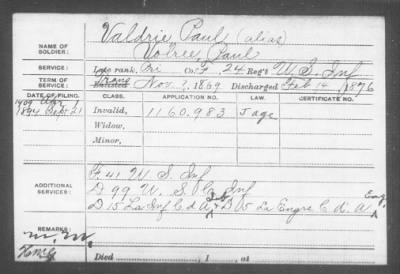 NAME OF SOLDIER: Valdrie Paul (alias)
Volree Paul
SERVICE: Late rank, Pri Co. F, 24 Reg't U. S. Inf
TERM OF SERVICE: Trans
Enlisted Nov. 1869 Discharged Feb 14, 1876
DATE OF FILING. CLASS. APPLICATION NO. LAW. CERTIFICATE NO.
Apr 1
1894 Sept 21 Invalid, 1160.983 J age
Widow,
Minor,
F 41 U. S. Inf
ADDITIONAL SERVICES: D 99 U. S. C. Inf
D 15 La Inf C d A & D U5 La Engrs C. d. A
REMARKS:
Died , 1 , at